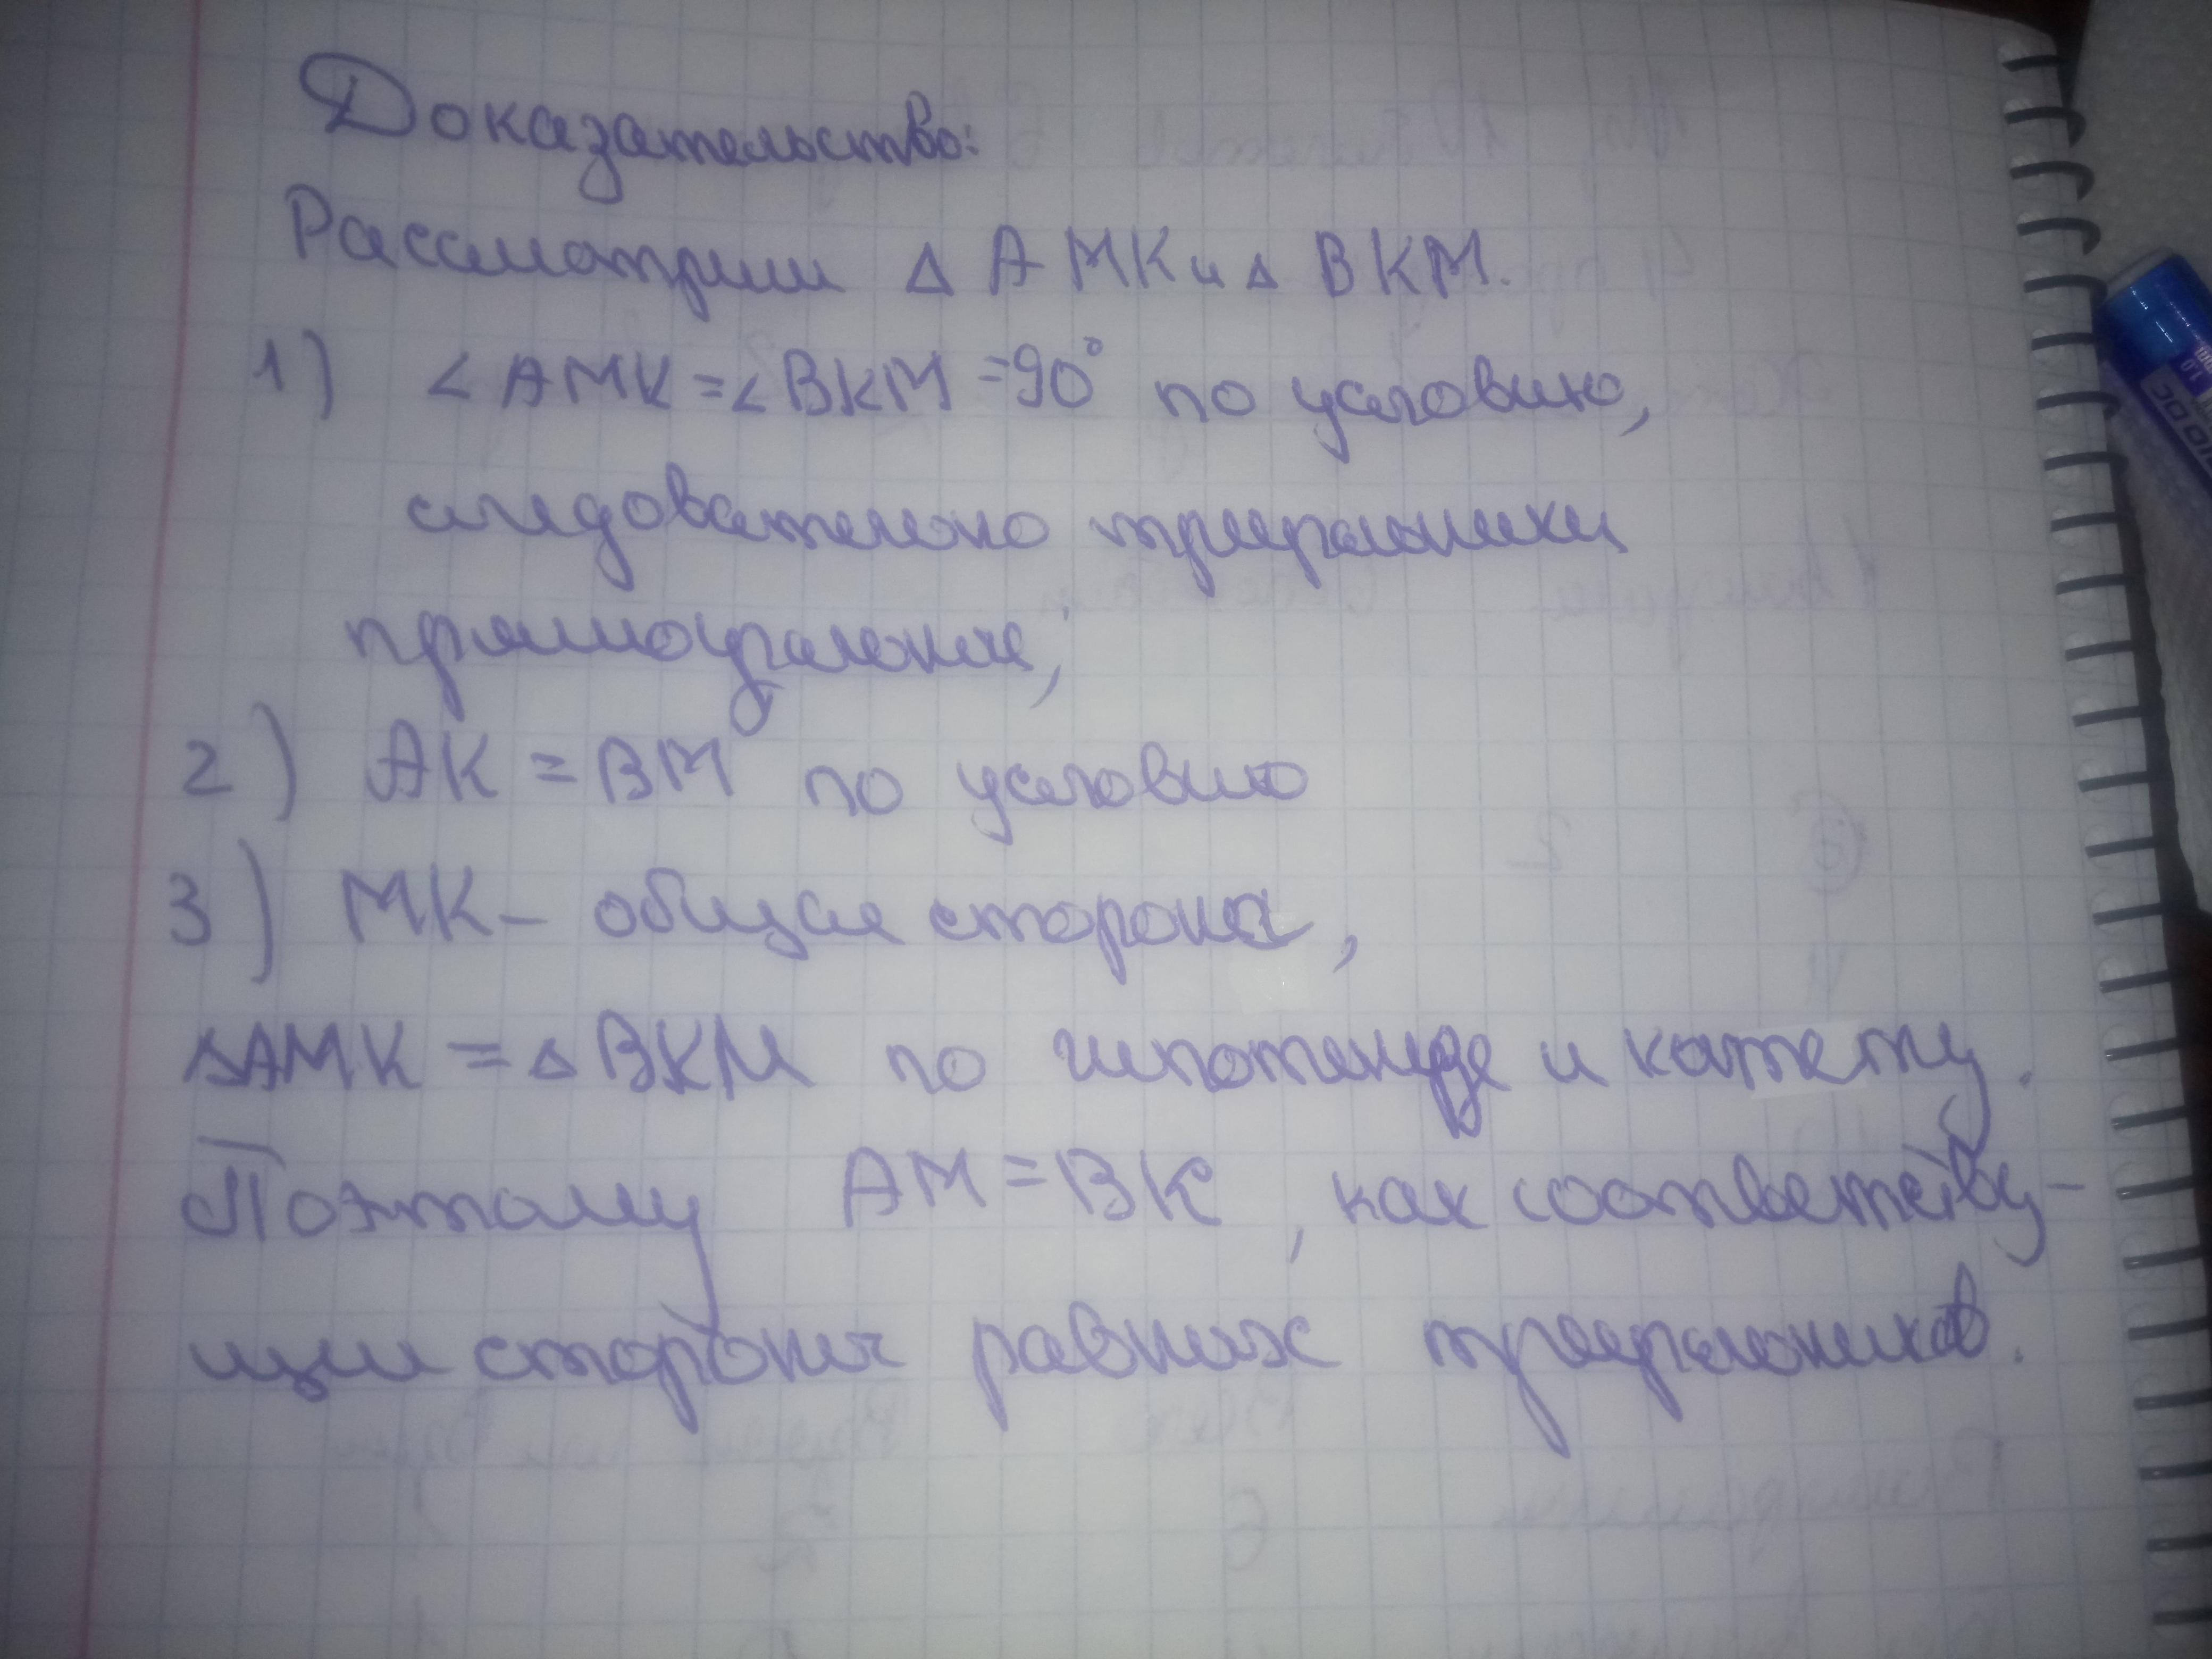 Доказательство:
Рассмотрим Δ АМК и Δ ВКМ.
1) ∠АМК=∠ВКМ=90° по условию,
следовательно треугольники
прямоугольные;
2) АК = ВМ по условию
3) МК – общая сторона,
ΔАМК = ΔВКМ по гипотенузе и катету.
Поэтому АМ=ВК, как соответству-
щие стороны равных треугольников.